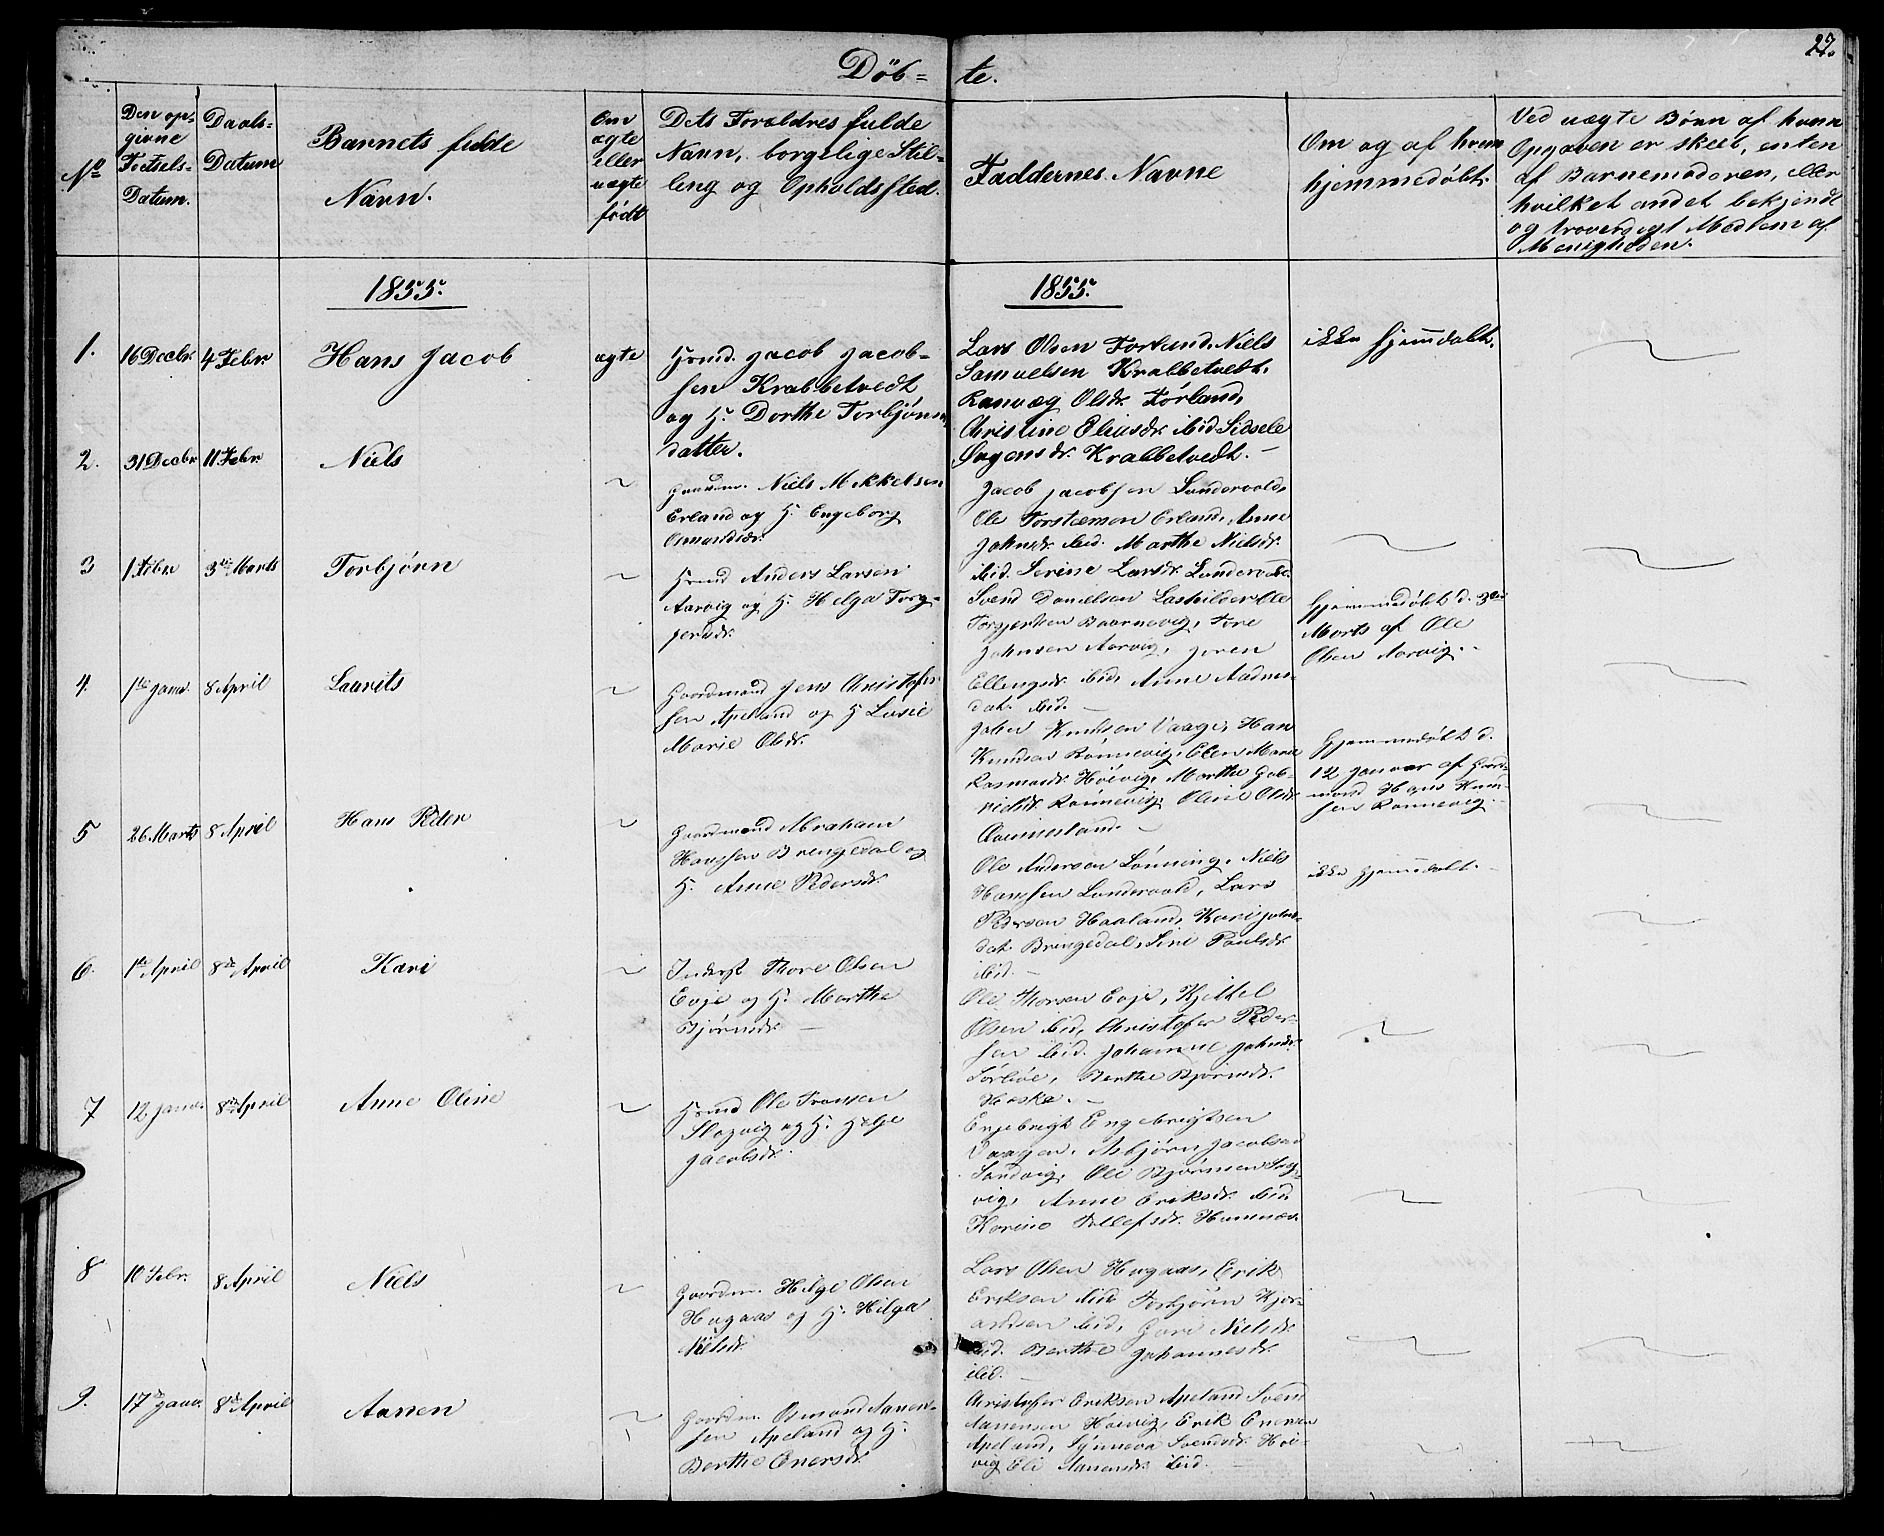 27.
Döb=
te.
No
Den op=
givne
Födsels=
Datum.
Daabs=
Datum
Barnets fulde
Navn.
Om
ægte
eller
uægte
födt
Dets Forældres fulde
Navn, borgelige Stil=
ling og Opholdssted.
Faddernes Navne
Om og af hvem
hjemmedöbt.
Ved uægte Börn af hvem
Opgaven er skeet, enten
af Barnemoderen, eller
hvilket andet bekjendt
og troverdigt Medlem af
Menigheden.
1855.
1855.
1.
16 Decbr
4 Febr
Hans Jacob
ægte
Hmd. Jacob Jacob=
sen Krabbetvedt
og H. Dorthe Torbjörns
datter.
Lars Olsen Forland, Niels
Samuelsen Krabbetvedt,
Ranvæg Olsdr. Förland,
Christine Eliasdr. ibid. Sidsele
Svensdr. Krabbetvedt. —
ikke hjemdøbt.
2.
31 Decbr
11 Febr
Niels
~
Gaardm. Niels Mikkelsen
Erland og H. Engeborg
Osmundsdr.
Jacob Jacobsen Sundervold,
Ole Torstensen Erland, Anne
Johnsdr. ibid. Marthe Nielsdr.
ibid. Serine Larsdr.
~
3
1 Febr
3die Marts
Torbjørn
~
Hmd Anders Larsen
Aarvig og H. Helga Torg=
jersdr.
Svend Danielsen Ole
Torgjersen Tore
Johnsen Aarvig,
Ellengsdr. ibid, Anne Aadnes=
dat. ibid. —
Hjemmedöbt d. 3die
Marts af Ole
Olsen Aarvig. -
4.
1te Janr.
8 April
Laurits
~
Gaardmand Jens Christofer=
sen Apeland og H Lusie
Marie Olsdr.
John Knudsen Vaage, Hans
Knudsen Rönnevig, Elen Marie
Rasmusdr. Høievig, Marthe Gab=
rielsdr. Rönnevig, Oline Olsdr
—
Hjemmedöbt d.
12 Januar af Gaard=
mand Hans Knud=
sen Rønnevig. -
5
26 Marts
8 April
Hans Peder
~
Gaardmand Abraham
Hanssen Bringedal og
H. Anne Pedersdr.
Ole Andersen Lönning, Niels
Hanssen Sundervold, Lars
Pedersen Haaland, Kari Johns=
dat. Bringedal, Siri Paulsdr.
ibid. —
ikke hjemmdøbt. -
6.
1te April
8de April
Kari
~
Inderst Thore Olsen
Evje og H. Marthe
Bjørnsdr. —
Ole Thorsen Evje, Kjettel
Olsen ibid, Christofer Peder=
sen ibid. Johanne Johnsdr.
Sörböe, Berthe Bjørnsdr.
Haske. —
~
7
12 Janr.
8de April
Anne Oline
~
Hmd Ole Tronsen
Slogvig og H. Helje
Jacobsdr.
Enjebrigt Engebrigtsen
Vaagen, Asbjørn Jacobsen
Sandvig, Ole Bjørnsen Slog=
vig, Anne Eriksdr. ibid,
Karine Tollefsdr. Hamnæs.
~
8
10 Febr.
8 April
Niels
~
Gaardm. Helge Olsen
Hagaas og H. Helga
Nielsdr.
Lars Olsen Hagaas, Erik
Eriksen ibid Torbjørn Kjør=
andsen ibid, Guri Nielsdr.
ibid. Berthe Johannesdr.
ibid. —
~
9.
17de Janr.
8de April
Aanen
~
Gaardm. Osmund Aanen=
sen Apeland og H.
Berthe Enersdr.
Christofer Eriksen Apeland Svend
Aanensen Høievig, Erik Enersen
Apeland, Synneva Svendsdr. Høi=
vig Eli Aanensdr. ibid. —
~